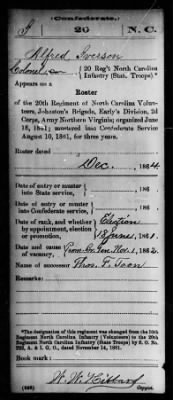 (Confederate.)
I 20 N. C.
Alfred Iverson
Colonel, 20 Reg't North Carolina
Infantry (Stat. Troops).*
Appears on a
Roster
of the 20th Regiment of North Carolina Volun-
teers, Johnston's Brigade, Early's Division, 2d
Corps, Army Northern Virginia; organized June
18, 1861; mustered into Confederate Service
August 10, 1861, for three years.
Roster dated
Dec, 1864.
Date of entry or muster
into State service, 186 .
Date of entry or muster
into Confederate service, 186 .
Date of rank, and whether
by appointment, election
or promotion, Election
18 June, 1861.
Date and cause
of vacancy, Prom. Br. Gen. Nov. 1, 1862.
Name of successor Thos. F. Toon
Remarks:
*The designation of this regiment was changed from the 10th
Regiment North Carolina Infantry (Volunteers) to the 20th
Regiment North Carolina Infantry (State Troops) by S. O. No.
222, A. & I. G. O., dated November 14, 1861.
Book mark:
W. W. Hibbard
Copyist.